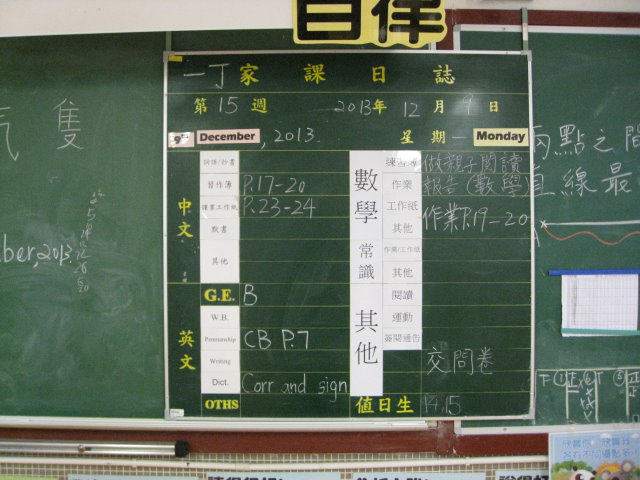 自律
一丁家課日誌
第15週 2013年12月9日
9th December, 2013. 星期一 Monday
中文
詞語/抄書
習作簿 P.17-20
課業工作紙 P.23-24
默書
其他
G.E. B
英文
W.B.
Penmanship CB P.7
Writing
Dict. Corr and sign
OTHS
數學
練習簿 做親子閱讀
作業 報告(數學)
工作紙 作業P.19-20
其他
常識
作業/工作紙
其他
其他
閱讀
運動
簽閱通告
交問卷
值日生 14,15
隻
ber,2013.
兩點之間
直線最
A